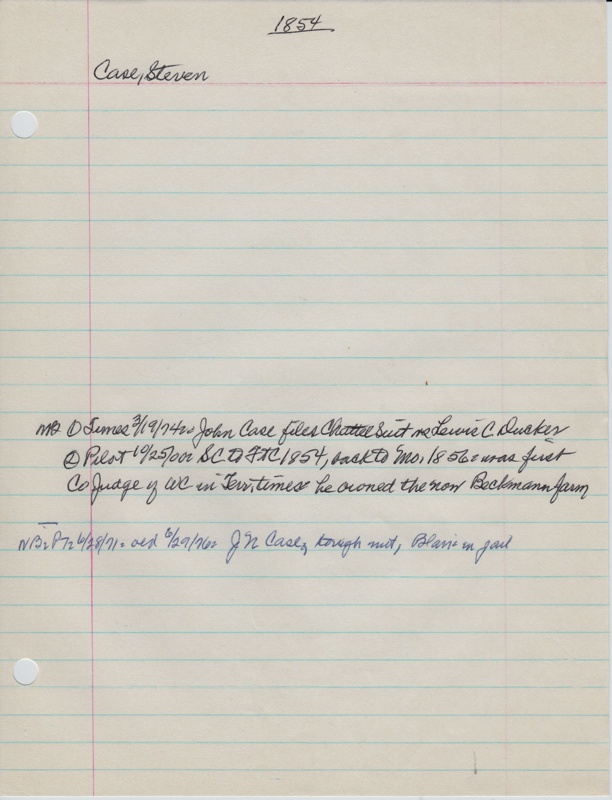 1854
Case, Steven
① Times 3/19/74 = John Case files Chattel Suit vs Lewis C. Ducker
② Pilot 10/25/00: SC to FTC 1854, back to Mo, 1856 = was first
Co Judge of WC in Terr. times = he owned the now Beckmann farm
6/28/71 = 6/29/76 = J N Case, tough nut, Blair in jail